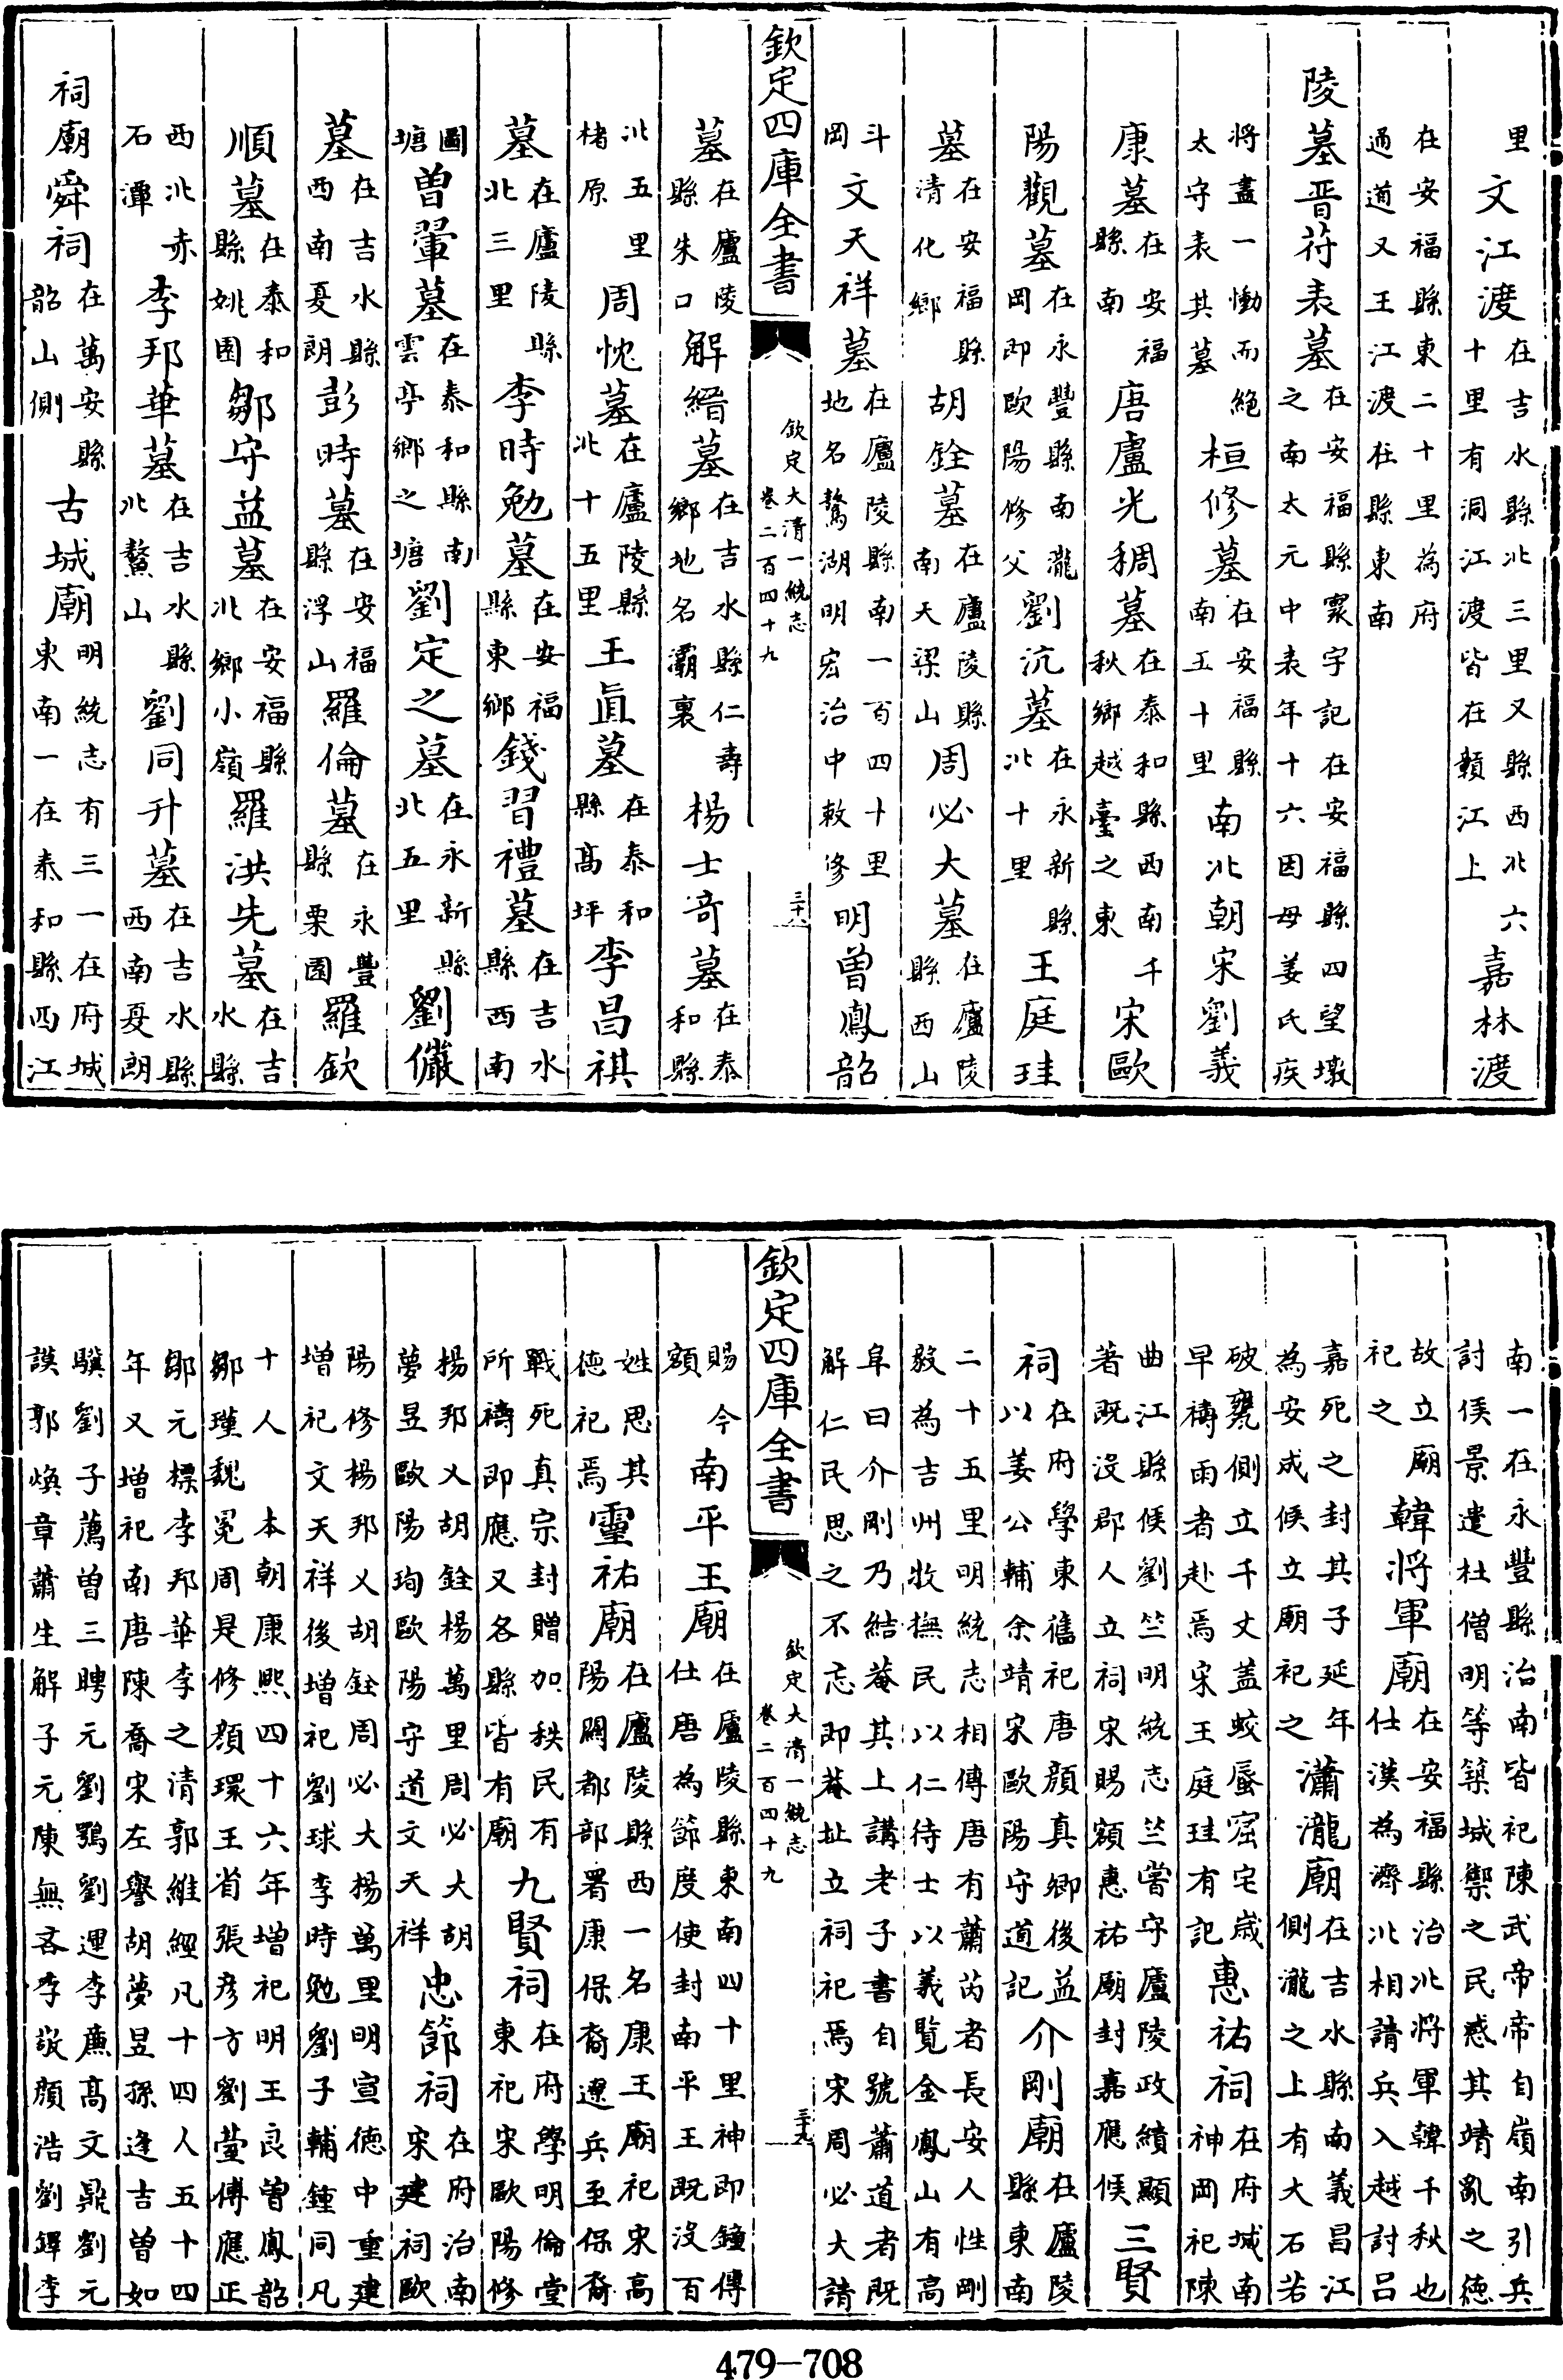 里文江渡在吉水縣北三里又縣西北六十里有洞江渡皆在贛江上嘉林渡
在安福縣東二十里為府通道又王江渡在縣東南
陵墓晉苻表墓在安福縣寰宇記在安福縣四望墩之南太元中表年十六因母姜氏疾
將盡一慟而絕太守表其墓桓修墓在安福縣南五十里南北朝宋劉義
康墓在安福縣南唐盧光稠墓在泰和縣西南千秋鄉越臺之東宋歐
陽觀墓在永豐縣南瀧岡即歐陽修父劉沆墓在永新縣北十里王庭珪
墓在安福縣清化鄉胡銓墓在廬陵縣南天梁山周必大墓在廬陵縣西山
斗岡文天祥墓在廬陵縣南一百四十里地名鶩湖明宏治中敕修明曾鳳韶
欽定四庫全書 欽定大清一統志卷二百四十九 三十八
墓在廬陵縣朱口解縉墓在吉水縣仁壽鄉地名灞裏楊士奇墓在泰和縣
北五里楮原周忱墓在廬陵縣北十五里王直墓在泰和縣高坪李昌祺
墓在廬陵縣北三里李時勉墓在安福縣東鄉錢習禮墓在吉水縣西南
圖塘曾翬墓在泰和縣南雲亭鄉之塘劉定之墓在永新縣北五里劉儼
墓在吉水縣西南戞朗彭時墓在安福縣浮山羅倫墓在永豐縣栗園羅欽
順墓在泰和縣姚園鄒守益墓在安福縣北鄉小嶺羅洪先墓在吉水縣
西北赤石潭李邦華墓在吉水縣北鰲山劉同升墓在吉水縣西南戞朗
祠廟舜祠在萬安縣韶山側古城廟明統志有三一在府城東南一在泰和縣西江
南一在永豐縣治南皆祀陳武帝帝自嶺南引兵討侯景遣杜僧明等築城禦之民惑其靖亂之德
故立廟祀之韓將軍廟在安福縣治北將軍韓千秋也仕漢為濟北相請兵入越討呂
嘉死之封其子延年為安成侯立廟祀之瀟瀧廟在吉水縣南義昌江側瀧之上有大石若
破甕側立千丈盖蛟蜃窟宅歲早禱雨者赴焉宋王庭珪有記惠祐祠在府城南神岡祀陳
曲江縣侯劉竺明統志竺嘗守廬陵政績顯著既沒郡人立祠宋賜額惠祐廟封嘉應侯三賢
祠在府學東舊祀唐顔真卿後益以姜公輔余靖宋歐陽守道記介剛廟在廬陵縣東南
二十五里明統志相傳唐有蕭芮者長安人性剛毅為吉州牧撫民以仁待士以義覽金鳳山有高
阜曰介剛乃結菴其上講老子書自號蕭道者既解仁民思之不忘即菴址立祠祀焉宋周必大請
欽定四庫全書 欽定大清一統志卷二百四十九 三十九
賜今額南平王廟在廬陵縣東南四十里神即鐘傳仕唐為節度使封南平王既沒百
姓思其德祀焉靈祐廟在廬陵縣西一名康王廟祀宋高陽關都部署康保裔遼兵至保裔
戰死真宗封贈加秩民有所禱即應又各縣皆有廟九賢祠在府學明倫堂東祀宋歐陽修
楊邦乂胡銓楊萬里周必大胡夢昱歐陽珣歐陽守道文天祥忠節祠在府治南宋建祠祀歐
陽修楊邦乂胡銓周必大楊萬里明宣德中重建增祀文天祥後增祀劉球李時勉劉子輔鍾同凡
十人本朝康熙四十六年增祀明王良曾鳳韶鄒瑾魏冕周是修顔環王省張彦方劉䇹傅應正
鄒元標李邦華李之清郭維經凡十四人五十四年又增祀南唐陳喬宋左譽胡夢昱孫逢吉曽如
驥劉子薦曾三聘元劉鶚劉運李廉高文鼎劉元謨郭煥章蕭生解子元陳無吝李敬顔浩劉鐸李